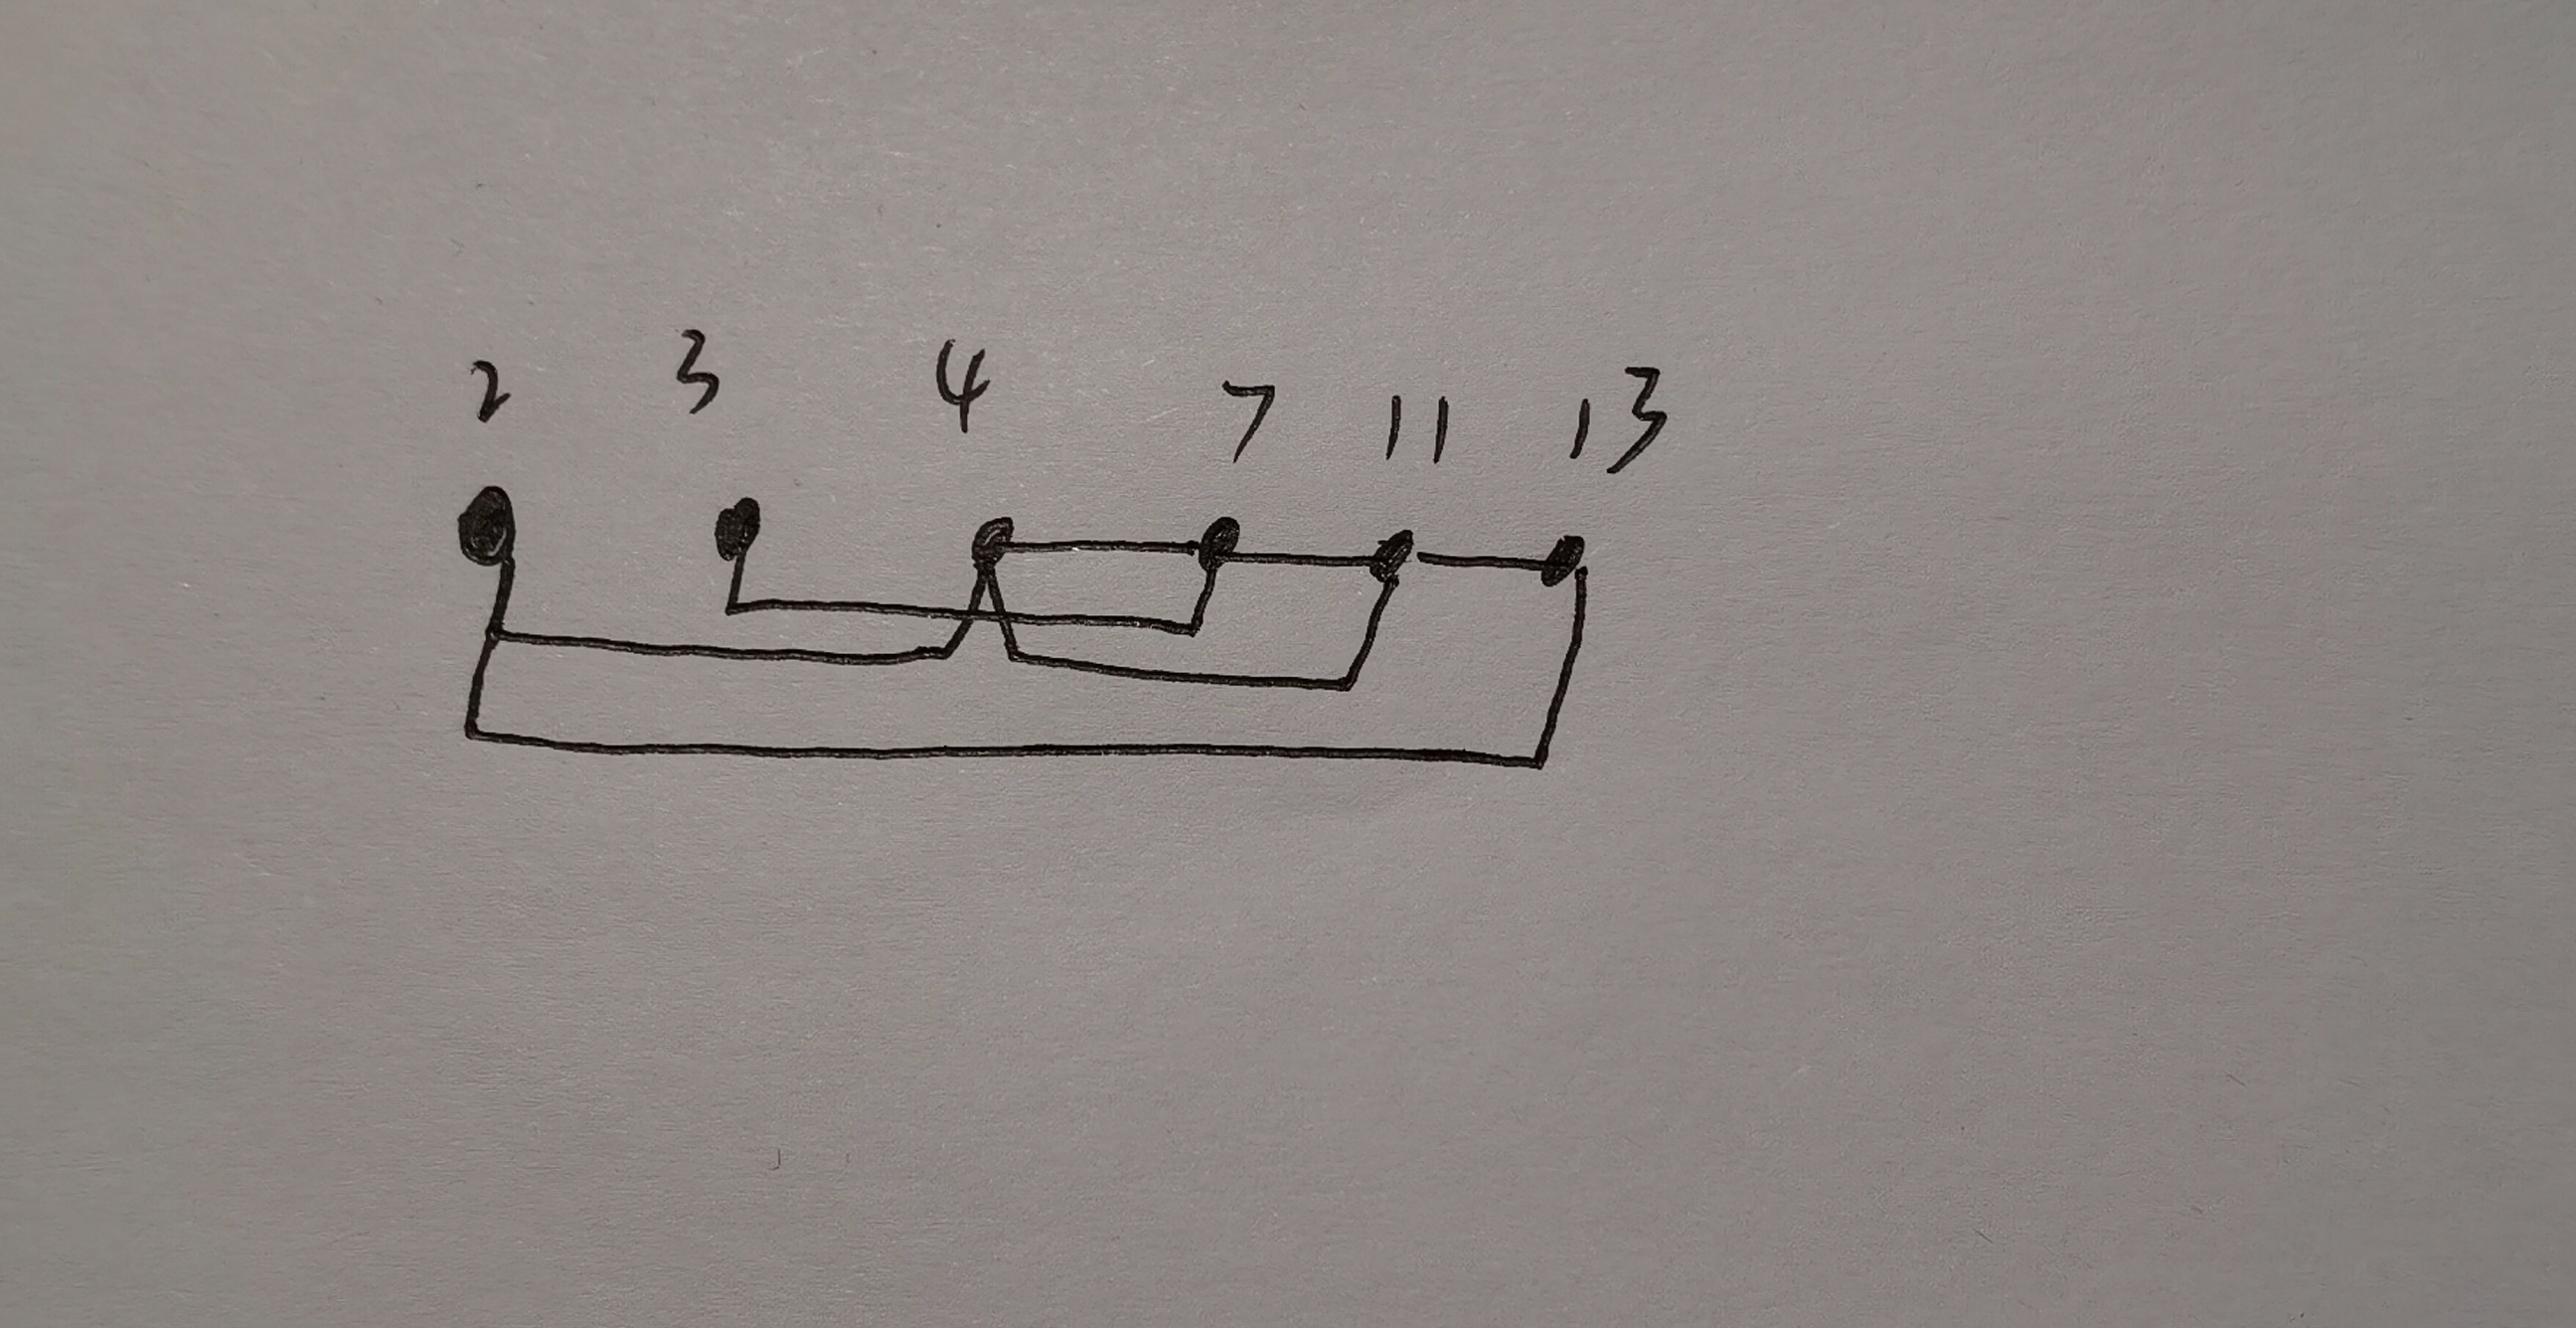 2 3 4 7 11 13